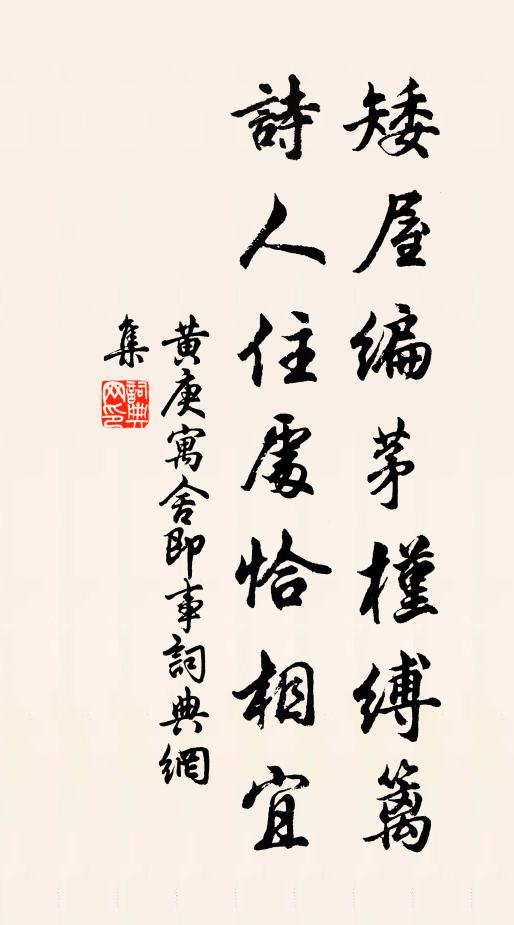 矮屋編茅槿縛籬
詩人住處恰相宜
黃庚寓舍即事詞典網
集
詞典网印